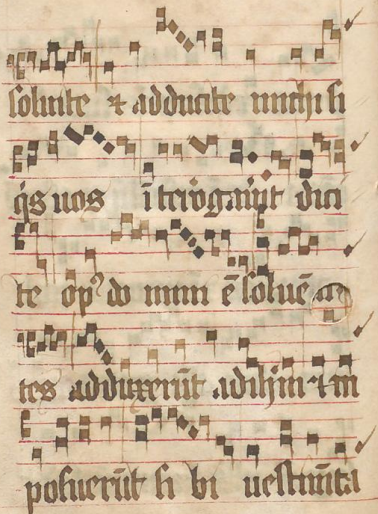 soluite & adducite michi si
q̄s uos īterrogau̾it dici
te op⁹ do mini ē soluē
tes adduxerūt ad ihm & im
posuerūt si bi uestimēta